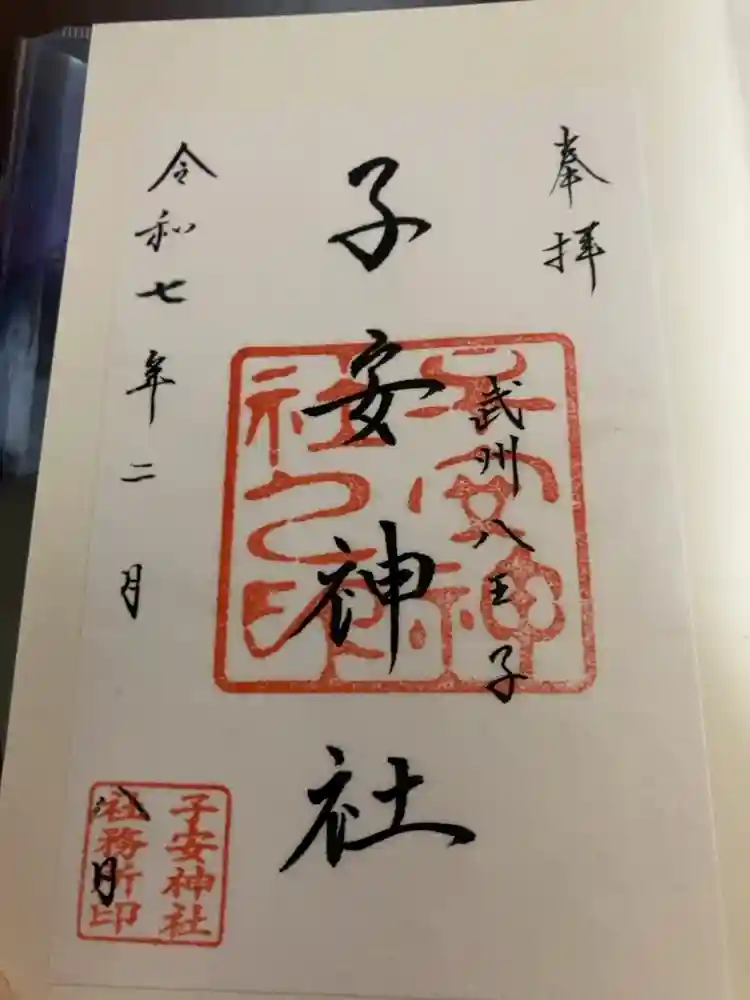 奉拝
武州八王子
子安神社
令和七年二月八日
子安神
社之印
子安神社
社務所印